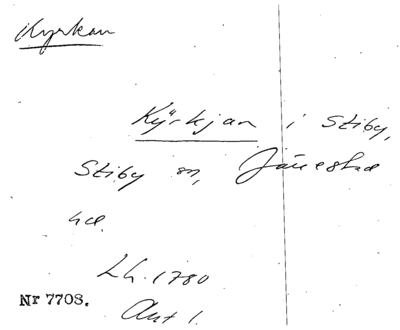 Kyrkan
Kÿrkjan i Stiby,
Stiby sn, Järrestad
hd.
Lh. 1780
Akt 1.
Nr 7708.